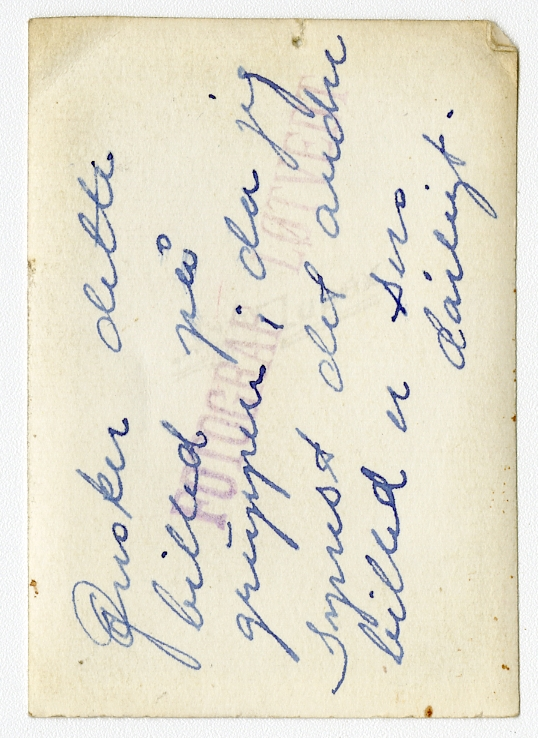 Ønsker dette
billed på
gruppen, da jeg
synes det andre
billed er saa
dårligt.
FOTOGRAF LØTVEDT